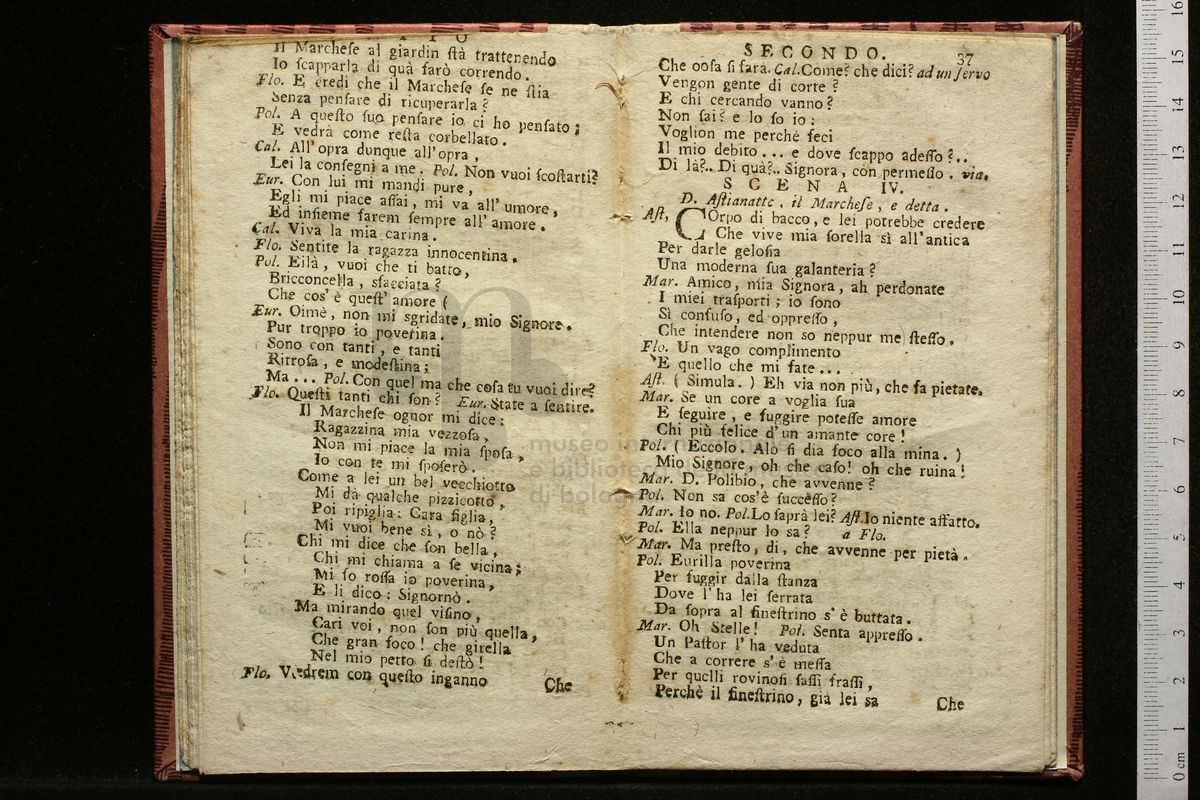 Il Marcheſe al giardin ſtà trattenendo
Io ſcapparla di quà farò correndo.
Flo. E credi che il Marcheſe ſe ne ſtia
Senza penſare di ricuperarla?
Pol. A queſto ſuo penſare io ci ho penſato;
E vedrà come reſta corbellato.
Cal. All' opra dunque all' opra,
Lei la conſegni a me. Pol. Non vuoi ſcoſtarti?
Eur. Con lui mi mandi pure,
Egli mi piace aſſai, mi va all' umore,
Ed inſieme farem ſempre all' amore.
Cal. Viva la mia carina.
Flo. Sentite la ragazza innocentina.
Pol. Eilà, vuoi che ti batto,
Bricconcella, sfacciata?
Che cos' è queſt' amore (
Eur. Oimè, non mi sgridate, mio Signore.
Pur troppo io poverina.
Sono con tanti, e tanti
Ritroſa, e modeſtina;
Ma... Pol. Con quel ma che coſa tu vuoi dire?
Flo. Queſti tanti chi ſon? Eur. State a ſentire.
Il Marcheſe ognor mi dice:
Ragazzina mia vezzoſa,
Non mi piace la mia ſpoſa,
Io con te mi ſpoſerò.
Come a lei un bel vecchiotto
Mi dà qualche pizzicotto,
Poi ripiglia: Cara figlia,
Mi vuoi bene sì, o nò?
Chi mi dice che ſon bella,
Chi mi chiama a ſe vicina;
Mi fo roſſa io poverina,
E li dico: Signornò.
Ma mirando quel viſino,
Cari voi, non ſon più quella,
Che gran foco! che girella
Nel mio petto ſi deſtò!
Flo. Vedrem con queſto inganno
Che
SECONDO. 37
Che coſa ſi farà. Cal. Come? che dici? ad un ſervo
Vengon gente di corte?
E chi cercando vanno?
Non ſai? e lo ſo io:
Voglion me perchè feci
Il mio debito... e dove ſcappo adeſſo?..
Di là?.. Di quà?.. Signora, con permeſſo. via.
SCENA IV.
D. Aſtianatte, il Marcheſe, e detta.
Aſt. COrpo di bacco, e lei potrebbe credere
Che vive mia ſorella sì all' antica
Per darle geloſia
Una moderna ſua galanteria?
Mar. Amico, mia Signora, ah perdonate
I miei traſporti; io ſono
Sì confuſo, ed oppreſſo,
Che intendere non ſo neppur me ſteſſo.
Flo. Un vago complimento
E quello che mi fate...
Aſt. (Simula.) Eh via non più, che fa pietate.
Mar. Se un core a voglia ſua
E ſeguire, e fuggire poteſſe amore
Chi più felice d' un amante core!
Pol. (Eccolo. Alò ſi dia foco alla mina.)
Mio Signore, oh che caſo! oh che ruina!
Mar. D. Polibio, che avvenne?
Pol. Non sa cos' è ſucceſſo?
Mar. Io no. Pol. Lo ſaprà lei? Aſt. Io niente affatto.
Pol. Ella neppur lo sa? a Flo.
Mar. Ma preſto, di, che avvenne per pietà.
Pol. Eurilla poverina
Per fuggir dalla ſtanza
Dove l' ha lei ſerrata
Da ſopra al fineſtrino s' è buttata.
Mar. Oh Stelle! Pol. Senta appreſſo.
Un Paſtor l' ha veduta
Che a correre s' è meſſa
Per quelli rovinoſi ſaſſi fraſſi,
Perchè il fineſtrino, già lei sa
Che